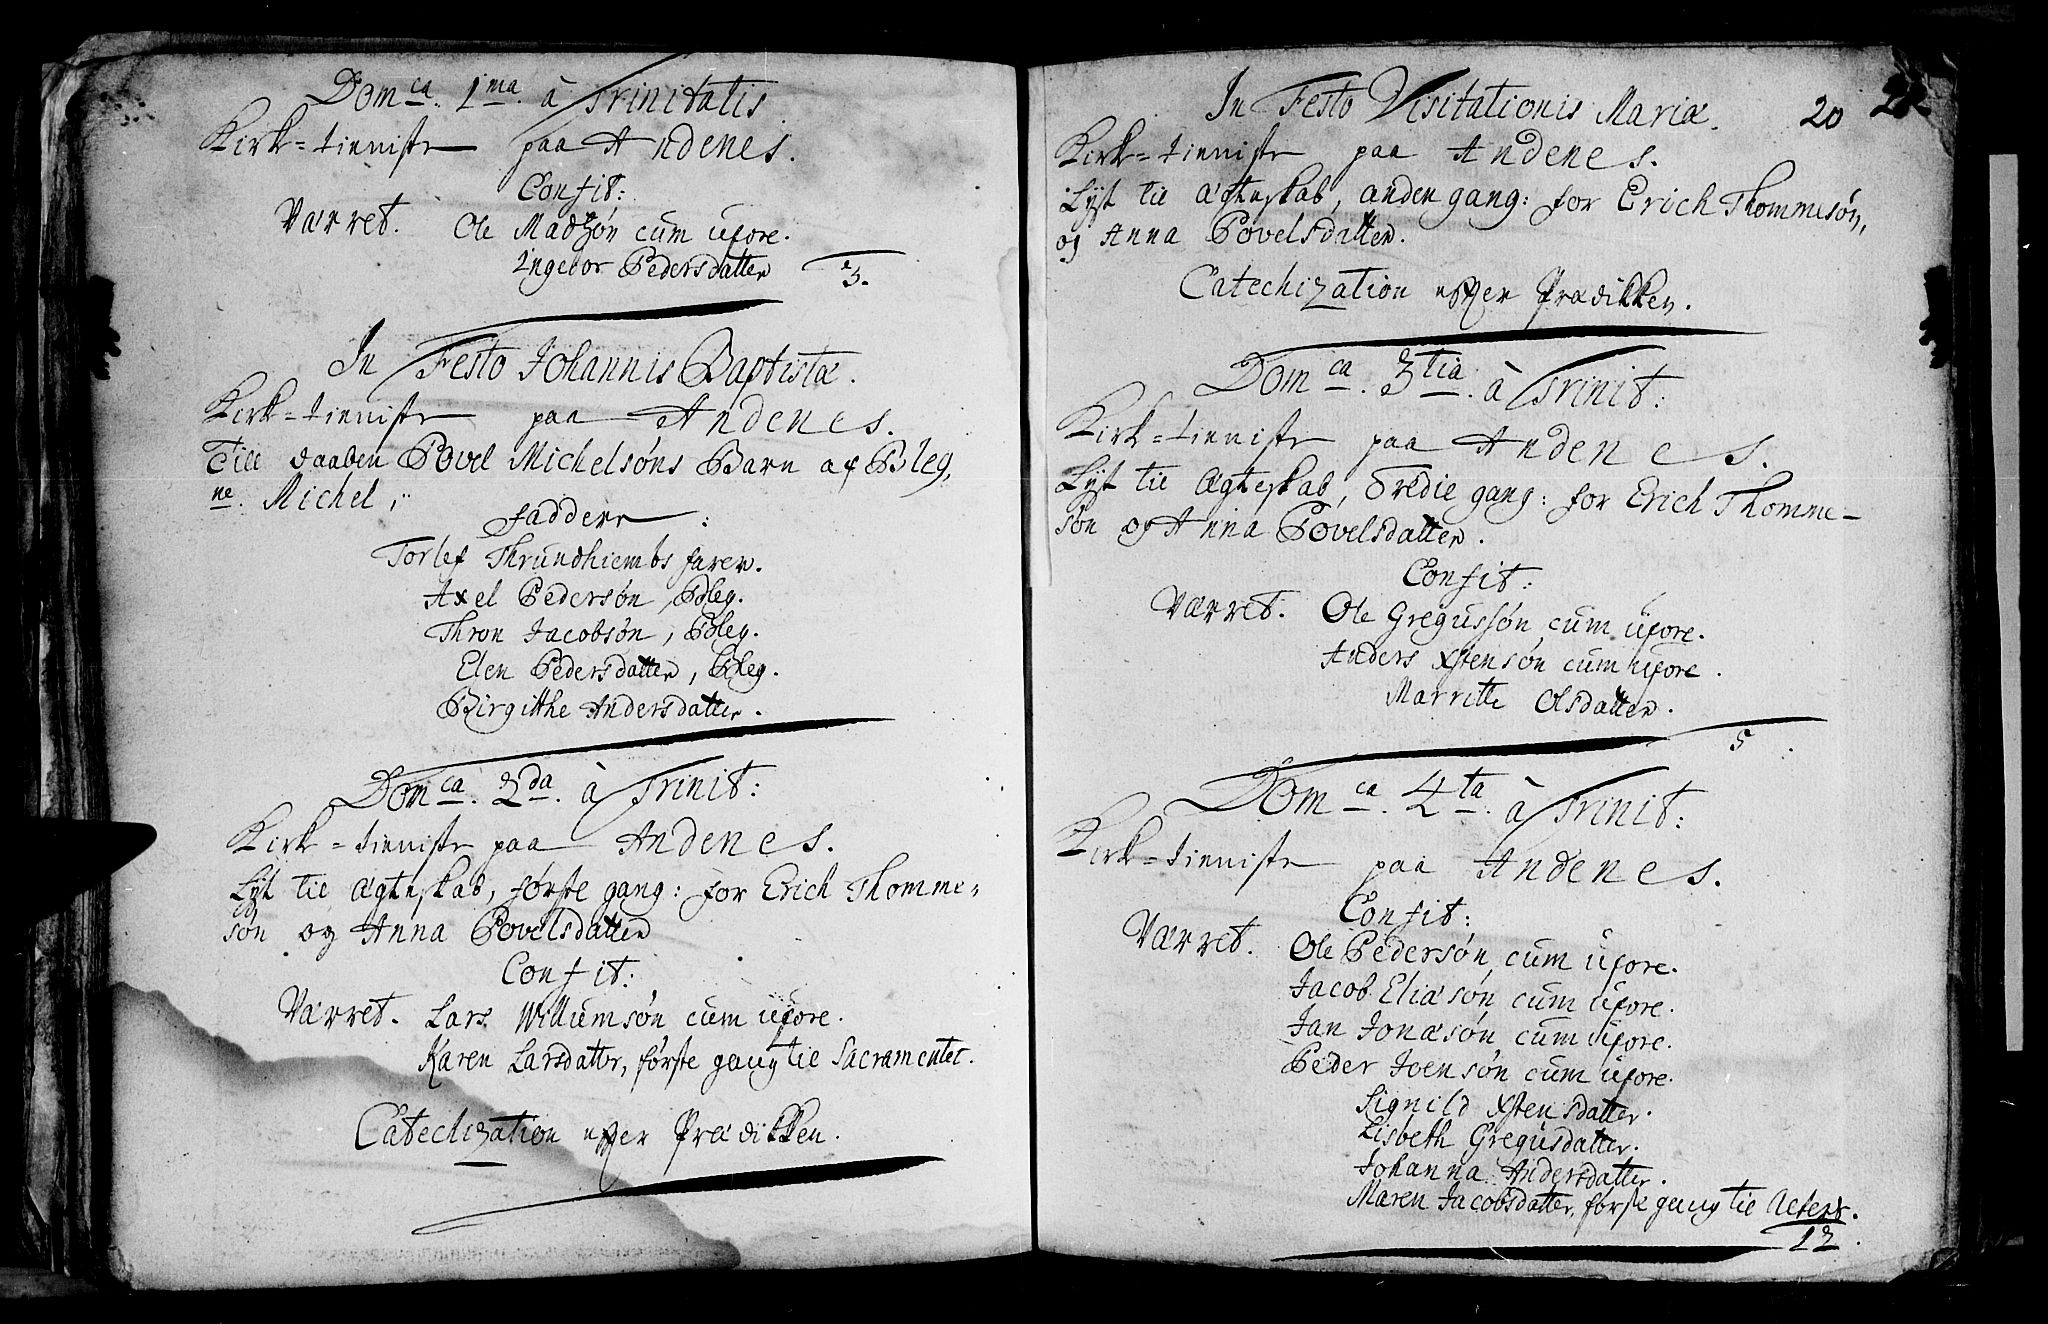 Dom<sup>ca</sup>. 1<sup>ma</sup>. à Trinitatis
Kirk=tienniste paa Andenes.
Confit:
Værret. Ole Madzøn cum uxore.
Ingebor Pedersdatter
3.
In Festo Johannis Baptistæ.
Kirk=tienniste paa Andenes.
Till daaben Povel Michelsøns Barn af Bleg,
ne. Michel,
faddere:
Torlef Thrundhiembs farer.
Axel Pedersøn, Bleg.
Thron Jacobsøn, Bleg.
Elen Pedersdatter, Bleg.
Birgitthe Andersdatter.
Dom<sup>ca</sup>. 2<sup>da</sup>. à Trinit:
Kirk=tienniste paa Andenes.
Lyst til Ægteskab, første gang: for Erich Thomme=
søn og Anna Povelsdatter
Confit:
Værret. Lars Willumsøn cum uxore.
Karen Larsdatter, første gang til Sacramentet.
Catechization efter Prædikken.
20
In Festo Visitationis Mariæ.
Kirk=tienniste paa Andenes.
Lyst til Ægteskab, anden gang: for Erich Thommesøn,
og Anna Povelsdatter.
Catechization efter Prædikken.
Dom<sup>ca</sup>. 3<sup>tia</sup>. à Trinit:
Kirk=tienniste paa Andenes.
Lyst til Ægteskab, Tredie gang: for Erich Thomme-
søn og Anna Povelsdatter.
Confit:
Værret. Ole Gregussøn cum uxore.
Anders Xstensøn cum uxore.
Marritte Olsdatter.
5
Dom<sup>ca</sup>. 4<sup>ta</sup>. à Trinit:
Kirk=tienniste paa Andenes.
Confit:
Værret. Ole Pedersøn cum uxore.
Jacob Eliæsøn cum uxore.
Jan Jonæsøn cum uxore.
Peder Joensøn cum uxore.
Signild Xstensdatter.
Lisbeth Gregusdatter.
Johanna Andersdatter.
Maren Jacobsdatter, første gang til
12.